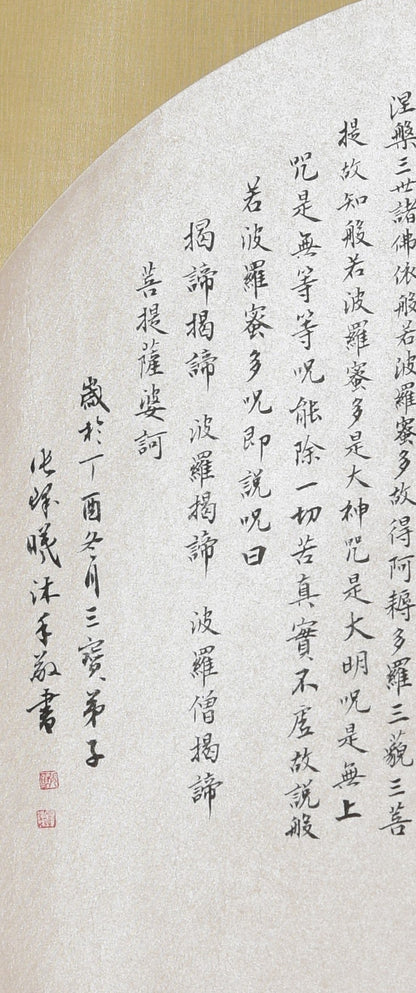 涅槃三世諸佛依般若波羅蜜多故得阿耨多羅三藐三菩
提故知般若波羅蜜多是大神咒是大明咒是無上
咒是無等等咒能除一切苦真實不虛故說般
若波羅蜜多咒即說咒曰
揭諦揭諦 波羅揭諦 波羅僧揭諦
菩提薩婆訶
歲於丁酉冬月三寶弟子
曦沐手敬書